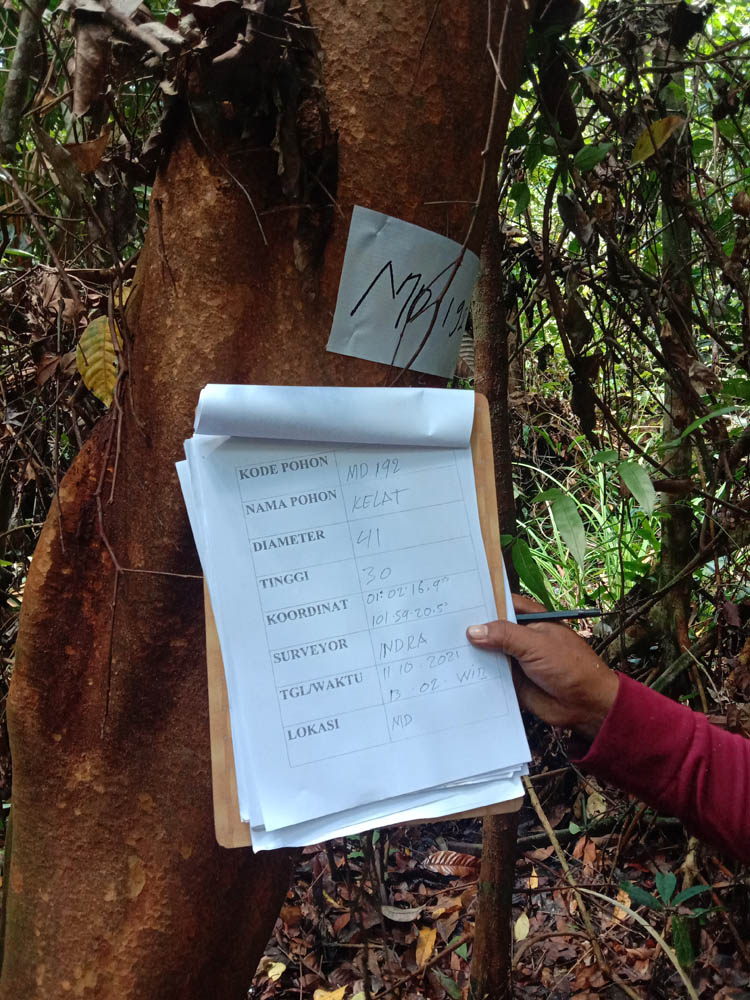 MD 192
KODE POHON MD 192
NAMA POHON KELAT
DIAMETER 41
TINGGI 30
KOORDINAT 01:02'16.9"
101-59-20.5"
SURVEYOR INDRA
TGL/WAKTU 11 10 . 2021
13 . 02 . WIB
LOKASI MD